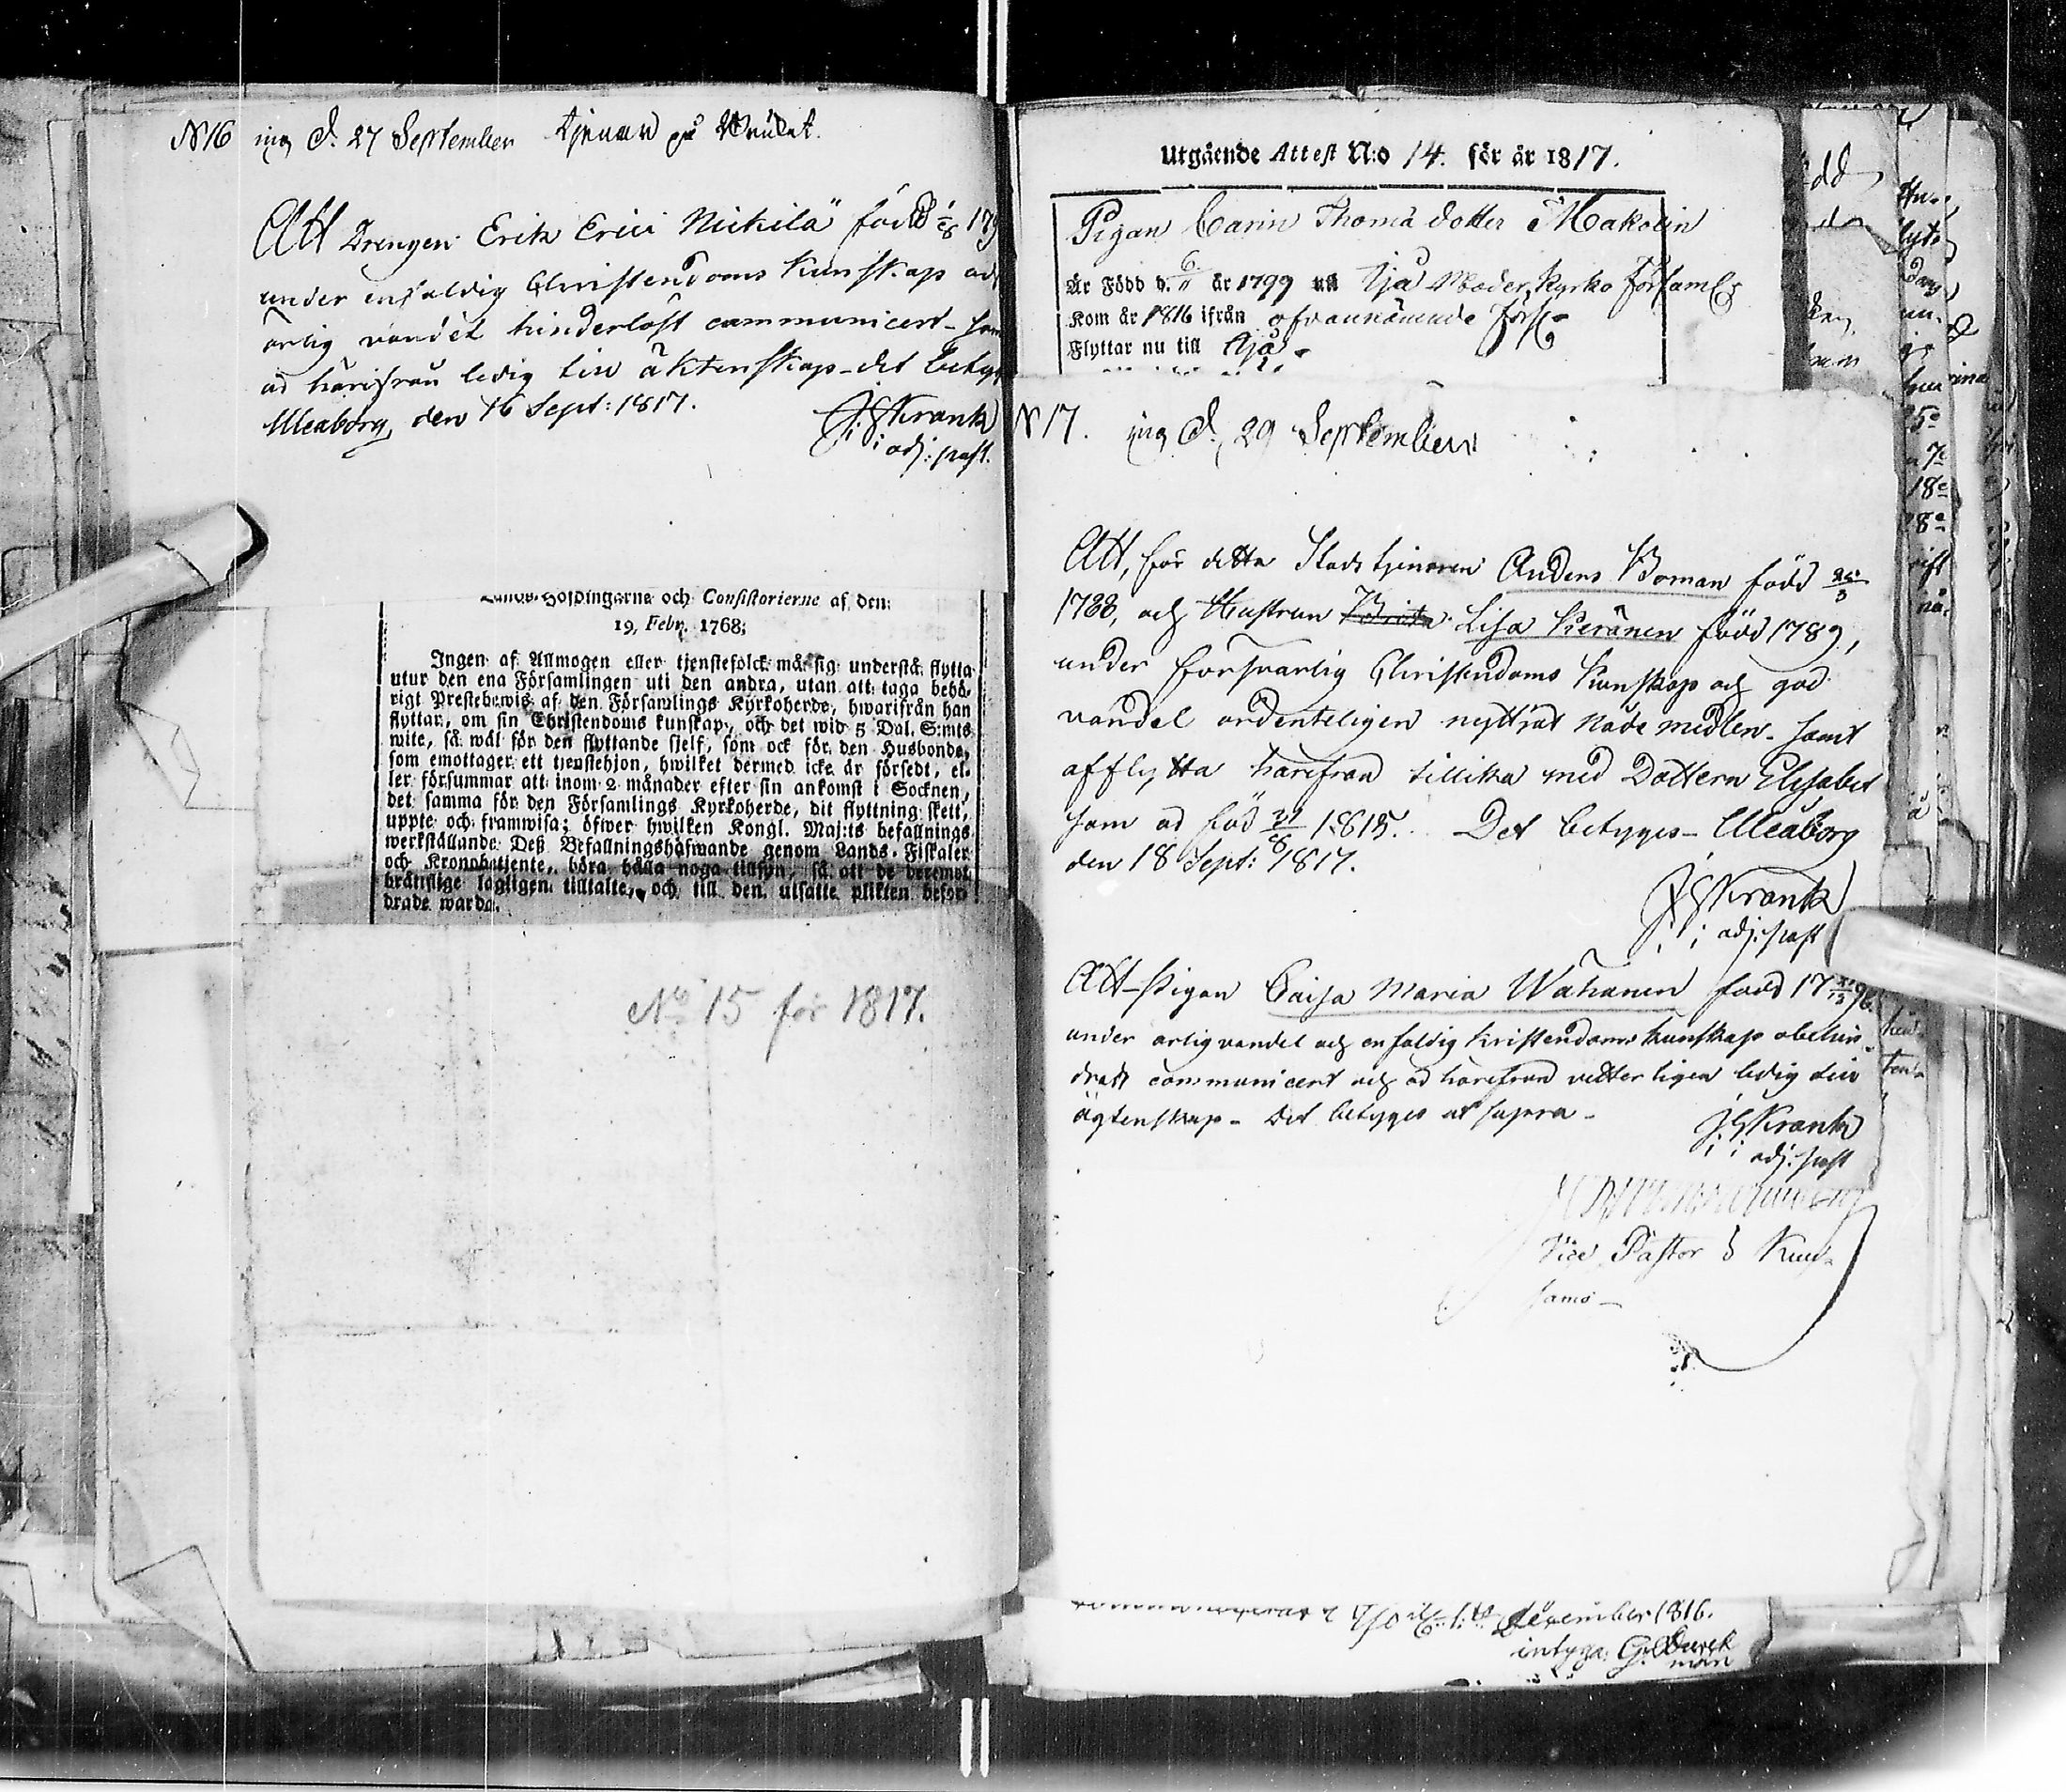 N16 ing d. 27 September tjenar på
Att Drengen Erik Erici Nickilä född 1/8 179
under enfaldig Christendoms Kunskap och
ärlig vandel hinderlöst communicert - samt
är härifrån ledig till äktenskap - det betyg
Uleaborg, den 16 Sept: 1817.
J G Krank
i adj: past.
Lands-Höfdingarne och Consistorierne af den
19, Febr. 1768;
Ingen af Allmogen eller tjenstefolck må sig understå flytta
utur den ena Församlingen uti den andra, utan att taga behö-
rigt Prestebewis af den Församlings Kyrkoherde, hwarifrån han
flyttar, om sin Christendoms kunskap, och det wid 5 Dal. S:mts
wite, så wäl för den flyttande sjelf, som ock för den Husbonde,
som emottager ett tjenstehjon, hwilket dermed icke är försedt, el-
ler försummar att inom 2 månader efter sin ankomst i Socknen,
det samma för den Församlings Kyrkoherde, dit flyttning skett,
uppte och framwisa; öfwer hwilken Kongl. Maj:ts befallnings
werkställande Deß Befallningshafwande genom Lands-Fiskaler
och Kronobetjente, böra hålla noga tillsyn, så att de deremot
bråttslige lagligen tilltalte, och till den utsatte plikten befor-
drade warda.
No 15 för 1817.
Utgående Attest N:o 14. för år 1817.
Pigan Carin Thomä dotter Makolin
Är Född d. 6/11 år 1799 Ijå Moder Kyrko Förſaml
Kom år 1816 ifrån ofvannämnde Förſ
Flyttar nu till Ijå -
N 17. ing d. 29 September
Att, för detta Stads tjenaren Anders Boman född
1788, och Hustrun Brita Lisa Keränen född 1789,
under försvarlig Christendoms Kunskap och god
vandel ordenteligen nyttjat Nåde medlen - samt
afflytta härifrån tillika med Dottern Elisabet
som är född 21/8 1815. Det betygas - Uleaborg
den 18 Sept: 1817.
J G Krank
i adj: past
Att Pigan Caisa Maria Wahanen född 17 96
under ärlig vandel och enfaldig Kristendoms kunskap obehin-
dradt communicert och är härifrån vetterligen ledig till
ägtenskap - Det betyges ut supra -
J G Krank
i adj: past
Vice Pastor i Kuu-
samo -
December 1816.
intyga: G.